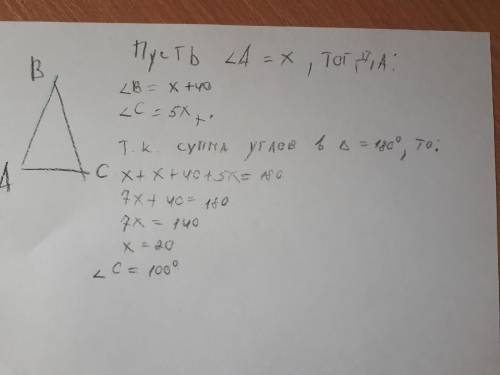 Пусть ∠A = x, тогда:
B
∠B = x + 40
∠C = 5x
Т.к. сумма углов в △ = 180°, то:
A
C
x + x + 40 + 5x = 180
7x + 40 = 180
7x = 140
x = 20
∠C = 100°